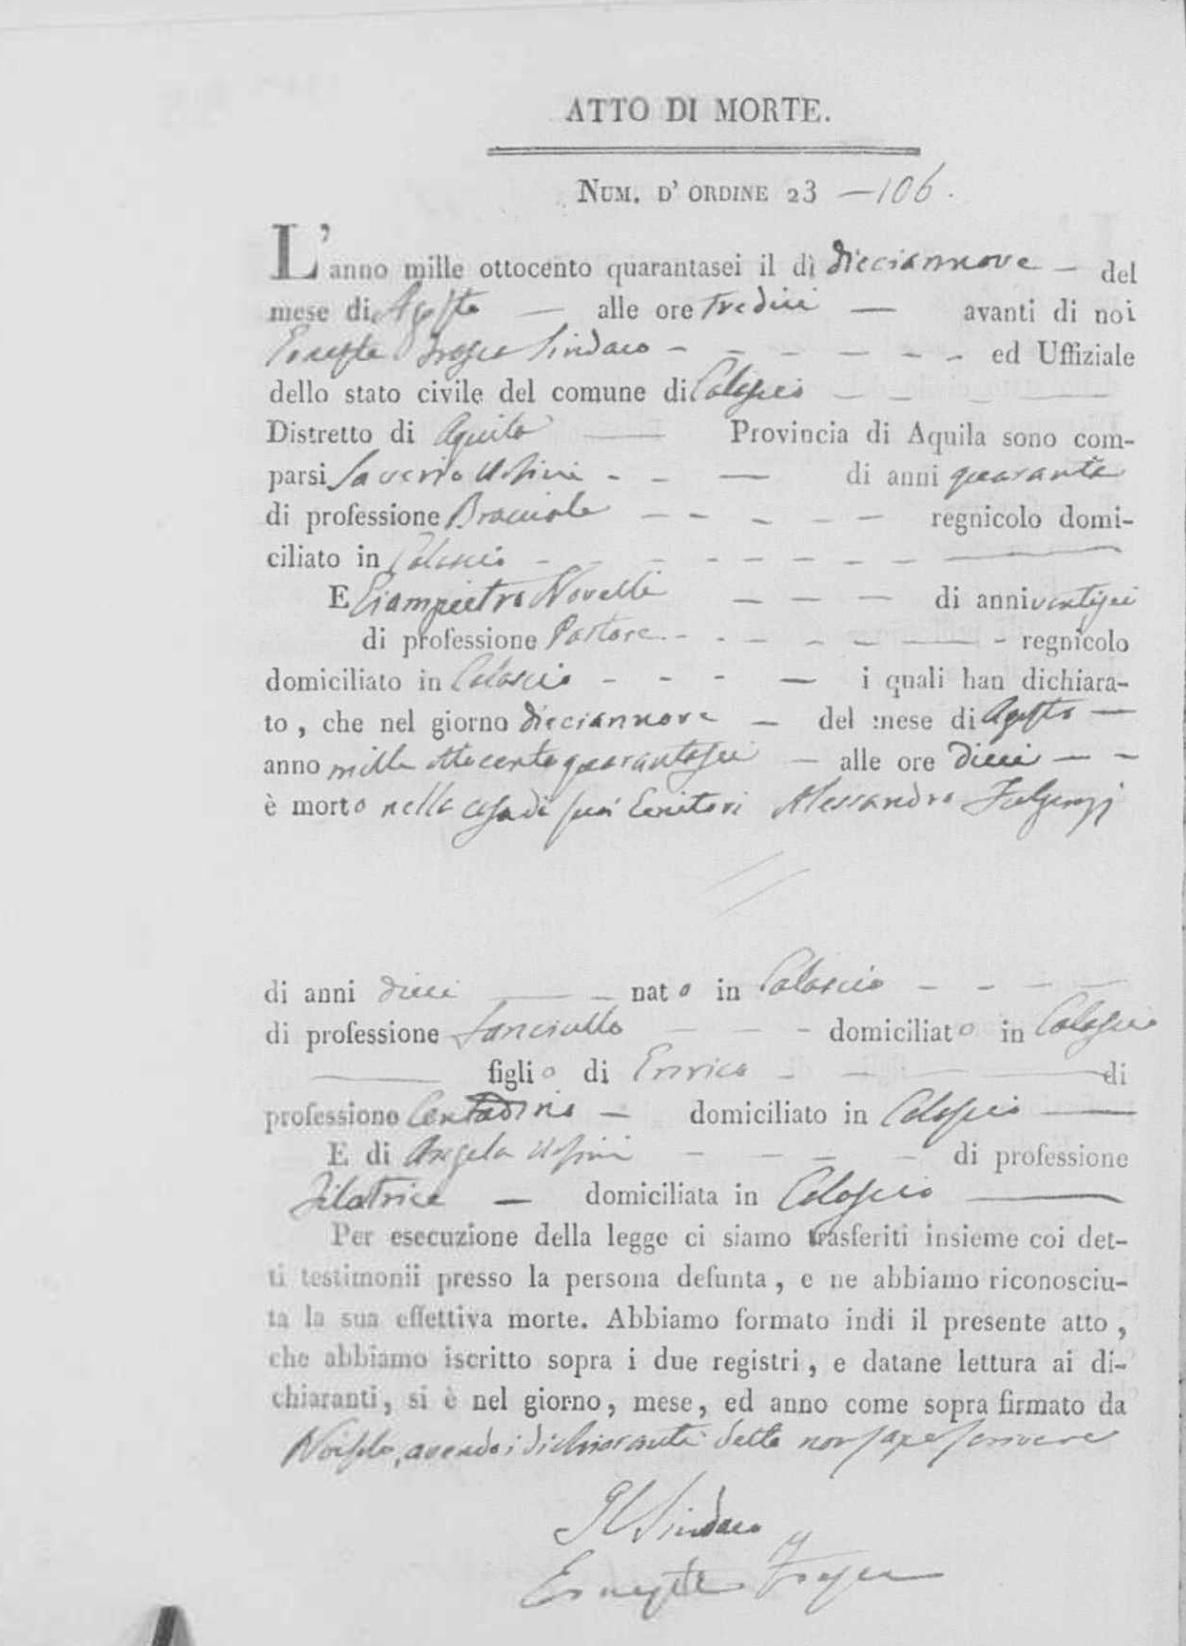 ATTO DI MORTE.
NUM. D' ORDINE 23 — 106.
L'anno mille ottocento quarantasei il dì dieciannove — del
mese di Agosto — alle ore tredici — avanti di noi
Sindaco - - - - - - - ed Uffiziale
dello stato civile del comune di Calascio — — — —
Distretto di Aquila — Provincia di Aquila sono com-
parsi Saverio - - — di anni quaranta
di professione Bracciale — - - - - — regnicolo domi-
ciliato in Calascio - - - - - - - —
E Giampietro Novelli — — — di anni ventisei
di professione Pastore - - - - - — - regnicolo
domiciliato in Calascio - - - — i quali han dichiara-
to, che nel giorno dieciannove — del mese di Agosto —
anno mille ottocento quarantasei — alle ore dieci — -
è morto nella casa di suoi Genitori Alessandro Fulgenzj
di anni dieci — — nato in Calascio - - - —
di professione Fanciullo — - - - domiciliato in Calascio
— figlio di Enrico - - - — di
professione Contadino — domiciliato in Calascio —
E di Angela - - - - di professione
Filatrice — domiciliata in Calascio —
Per esecuzione della legge ci siamo trasferiti insieme coi det-
ti testimonii presso la persona defunta, e ne abbiamo riconosciu-
ta la sua effettiva morte. Abbiamo formato indi il presente atto,
che abbiamo iscritto sopra i due registri, e datane lettura ai di-
chiaranti, si è nel giorno, mese, ed anno come sopra firmato da
Noi solo, avendo i dichiaranti detto non saper scrivere
Il Sindaco